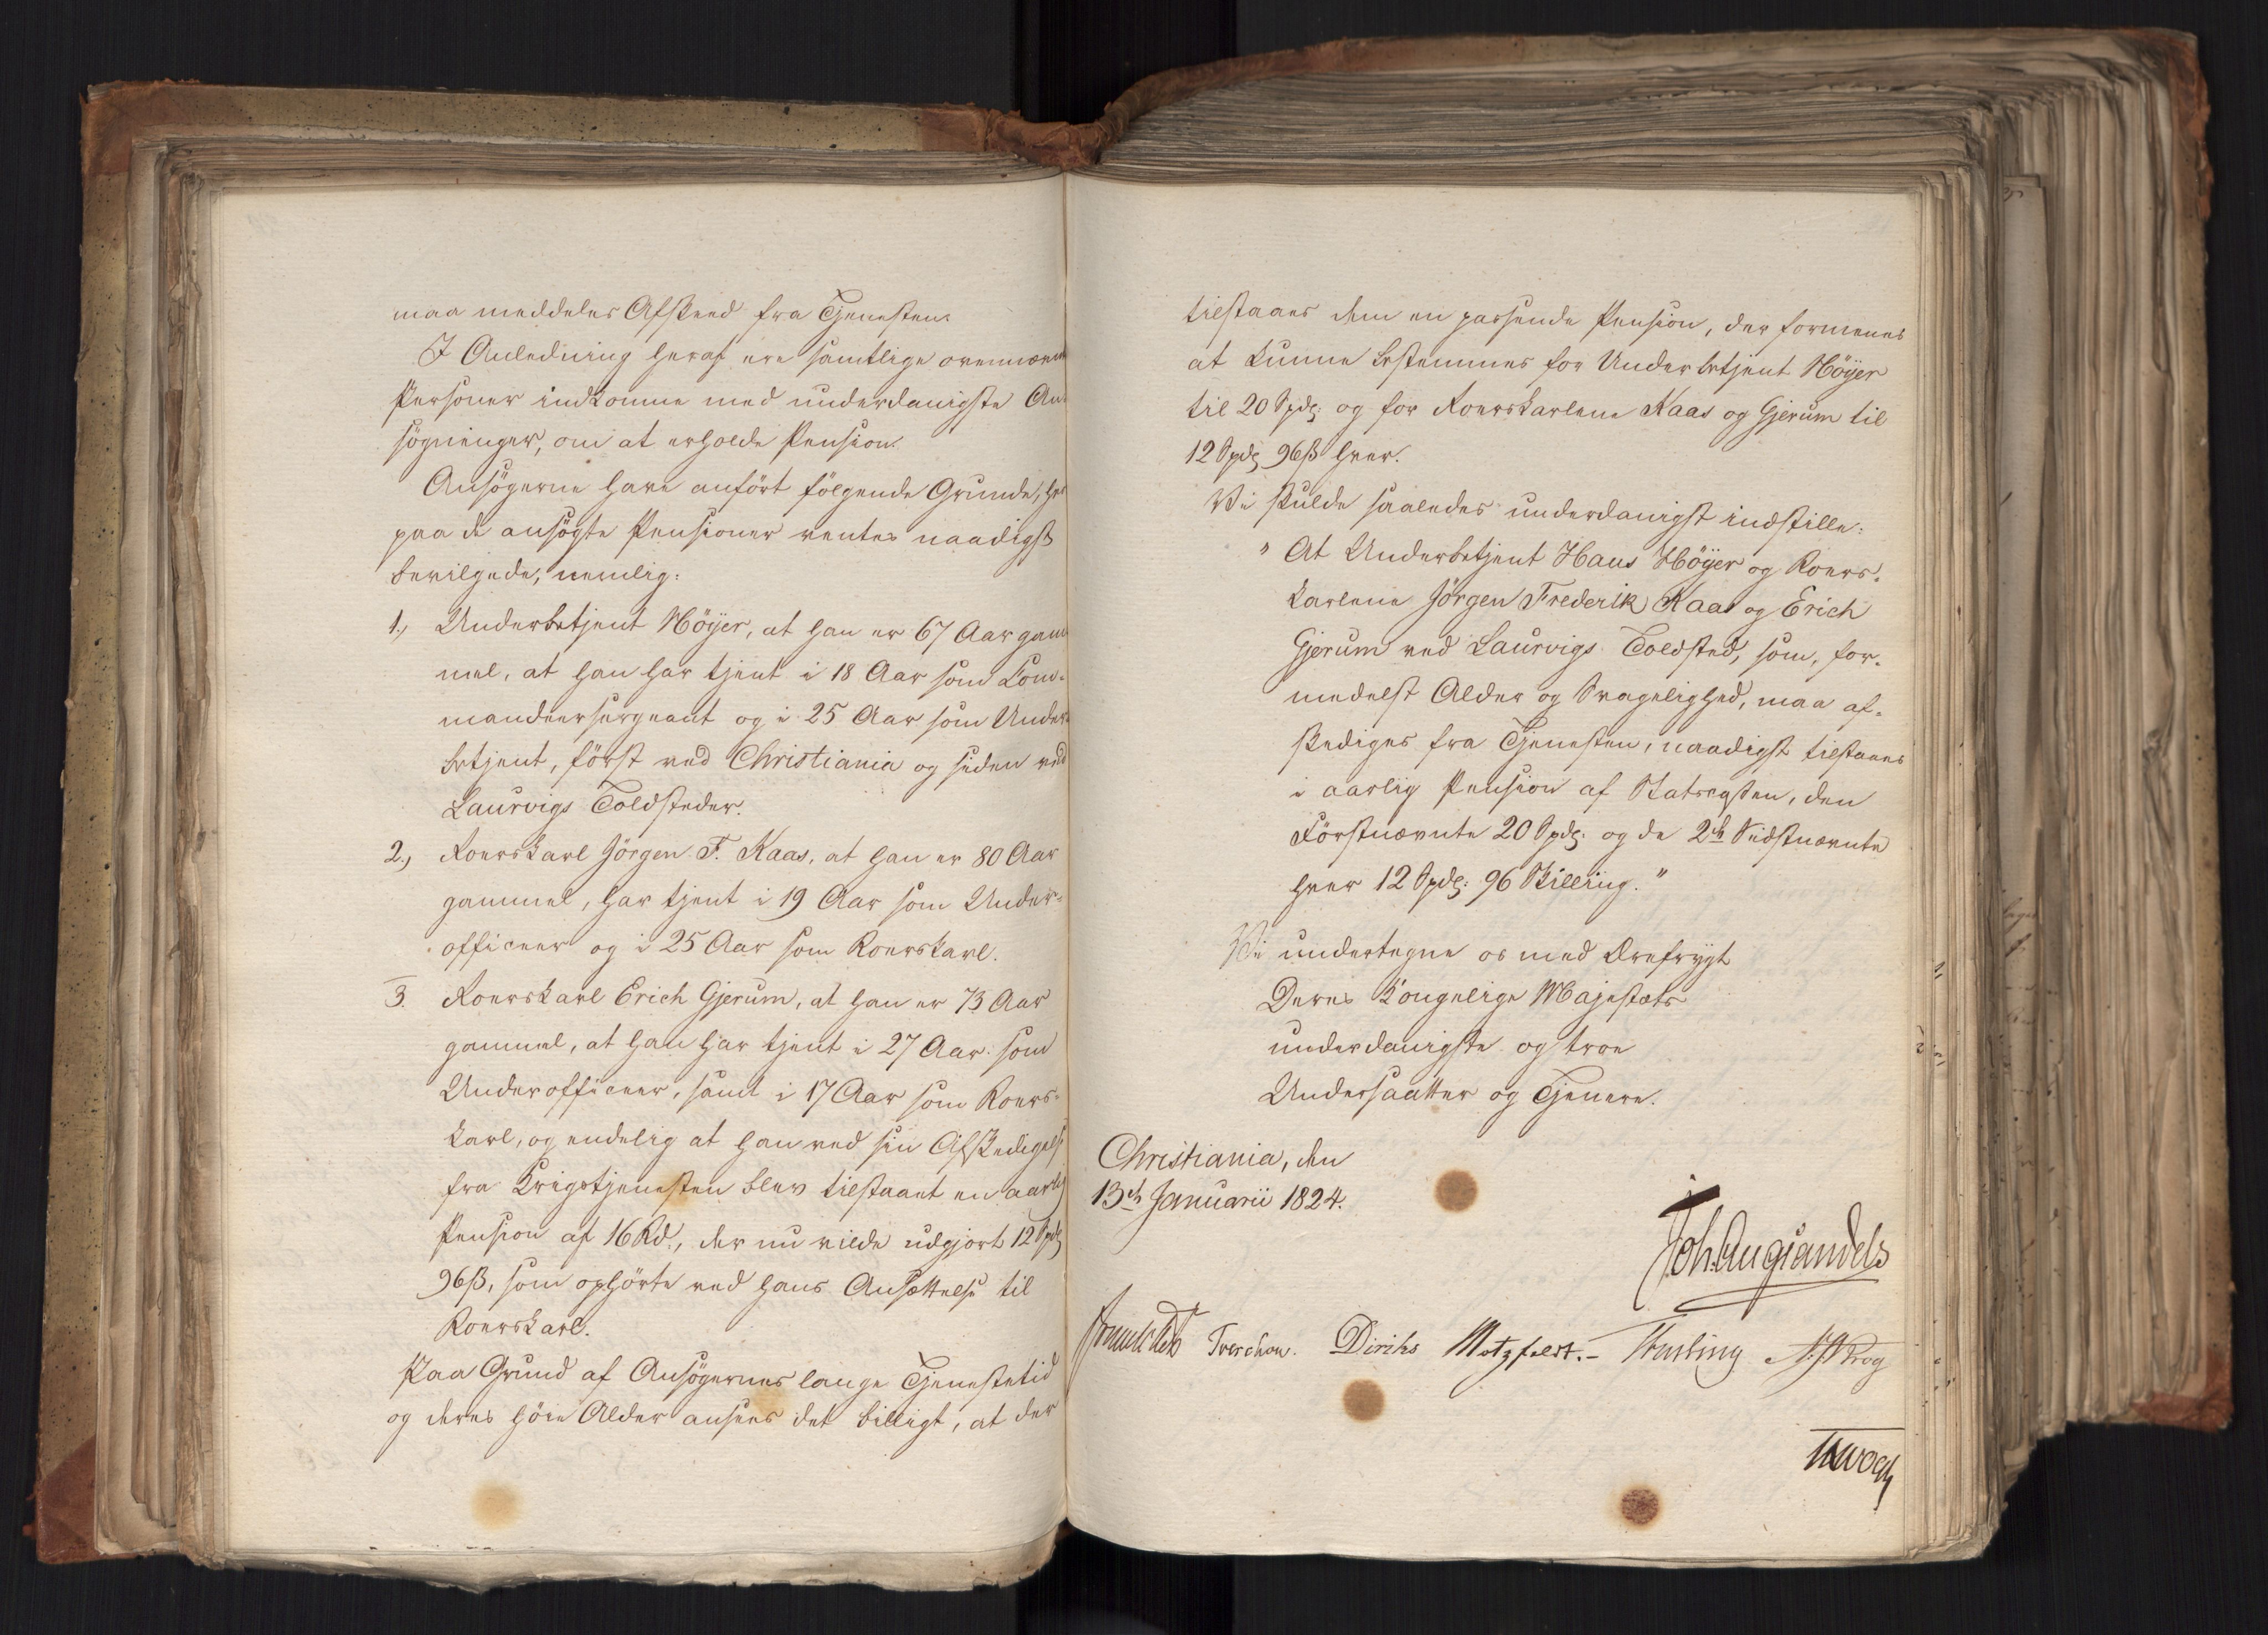 maa meddeles Afskeed fra Tjenesten.
I Anledning heraf ere samtlige ovennævnte
Personer indkomne med underdanigste An-
søgninger, om at erholde Pension.
Ansøgerne have anført følgende Grunde, hvor
paa de ansøgte Pensioner ventes naadigst
bevilgede, nemlig:
1., Underbetjent Höyer, at han er 67 Aar gam
mel, at han har tjent i 18 Aar som Com-
mandeersergeant og i 25 Aar som Under
betjent, först ved Christiania og siden ved
Laurvigs Toldsteder.
2., Roerskarl Jörgen F. Kaas, at han er 80 Aar
gammel, har tjent i 19 Aar som Under-
officeer og i 25 Aar som Roerskarl.
3. Roerskarl Erich Gjerum, at han er 73 Aar
gammel, at han har tjent i 27 Aar som
Underofficeer, samt i 17 Aar som Roers-
karl, og endelig at han ved sin Afskedigelse
fra Krigstjenesten blev tilstaaet en aarlig
Pension af 16 Rd., der nu vilde udgjort 12 Spd
96 ß, som ophörte ved hans Ansættelse til
Roerskarl.
Paa Grund af Ansögernes lange Tjenestetid
og deres höie Alder ansees det billigt, at der
tilstaaes dem en passende Pension, der formenes
at kunne bestemmes for Underbetjent Höyer
til 20 Spd. og for Roerskarlene Kaas og Gjerum til
12 Spd 96 ß hver.
Vi skulde saaledes underdanigst indstille:
"At Underbetjent Hans Höyer og Roers-
karlene Jörgen Frederik Kaas og Erich
Gjerum ved Laurvigs Toldsted, som, for-
medelst Alder og Svagelighed, maa af-
skediges fra Tjenesten, naadigst tilstaaes
i aarlig Pension af Statscassen, den
Förstnævnte 20 Spd. og de 2de Sidstnævnte
hver 12 Spd: 96 Skilling."
Vi undertegne os med Ærefrygt
Deres Kongelige Majestæts
underdanigste og troe
Undersaatter og Tjenere.
Christiania, den
13de Januarii 1824.
Joh. Aug Sandels
Treschow. Diriks Motzfeldt.- Fasting Krog